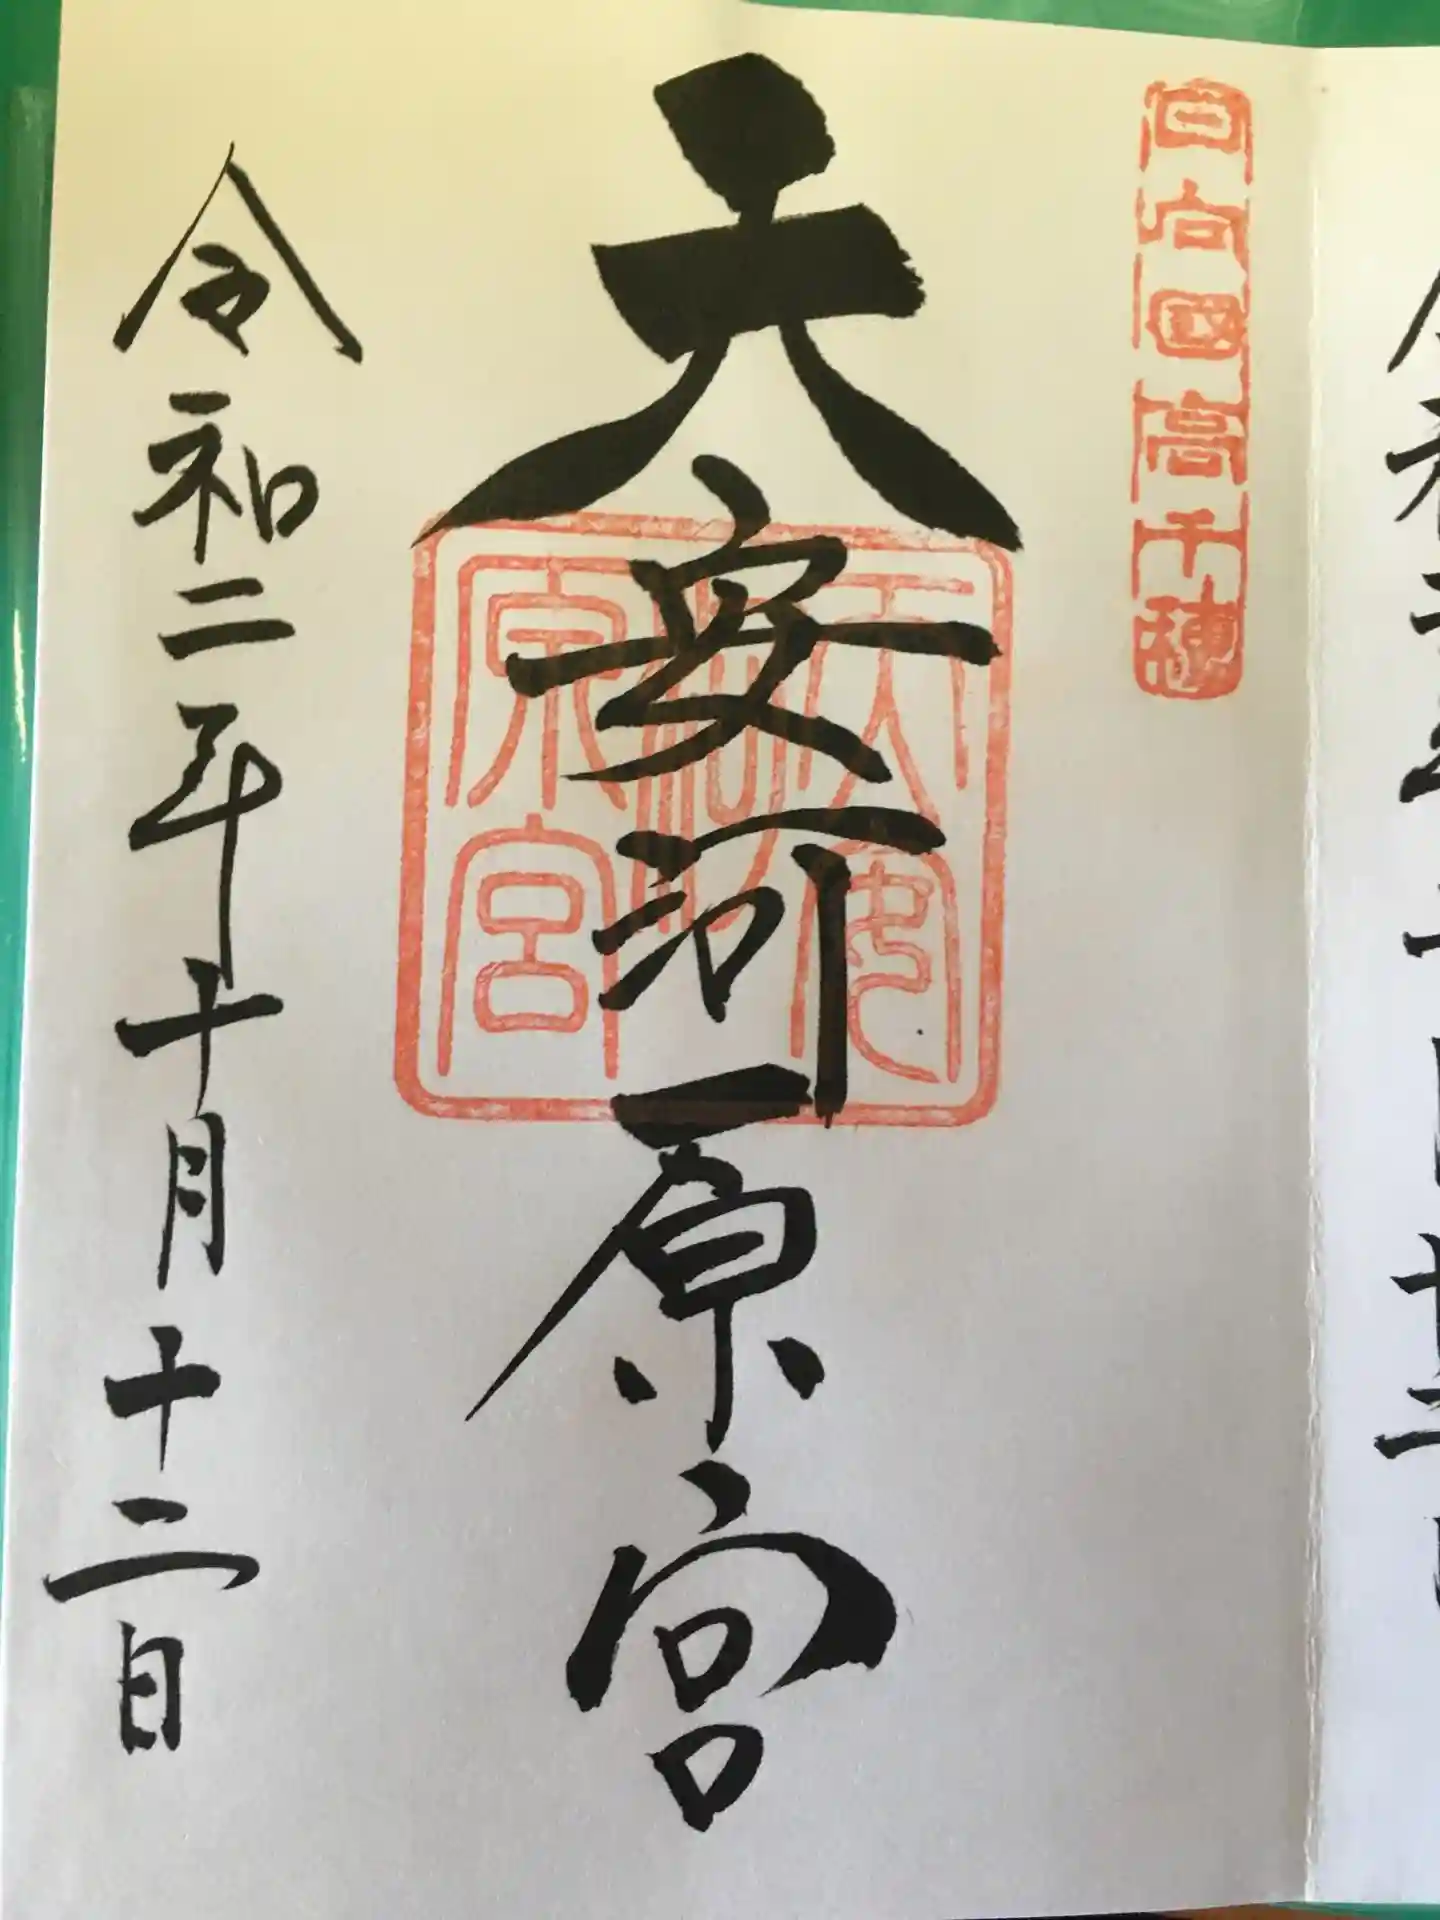 日向国高千穂
天安河原宮
天安河原宮
令和二年十月十二日